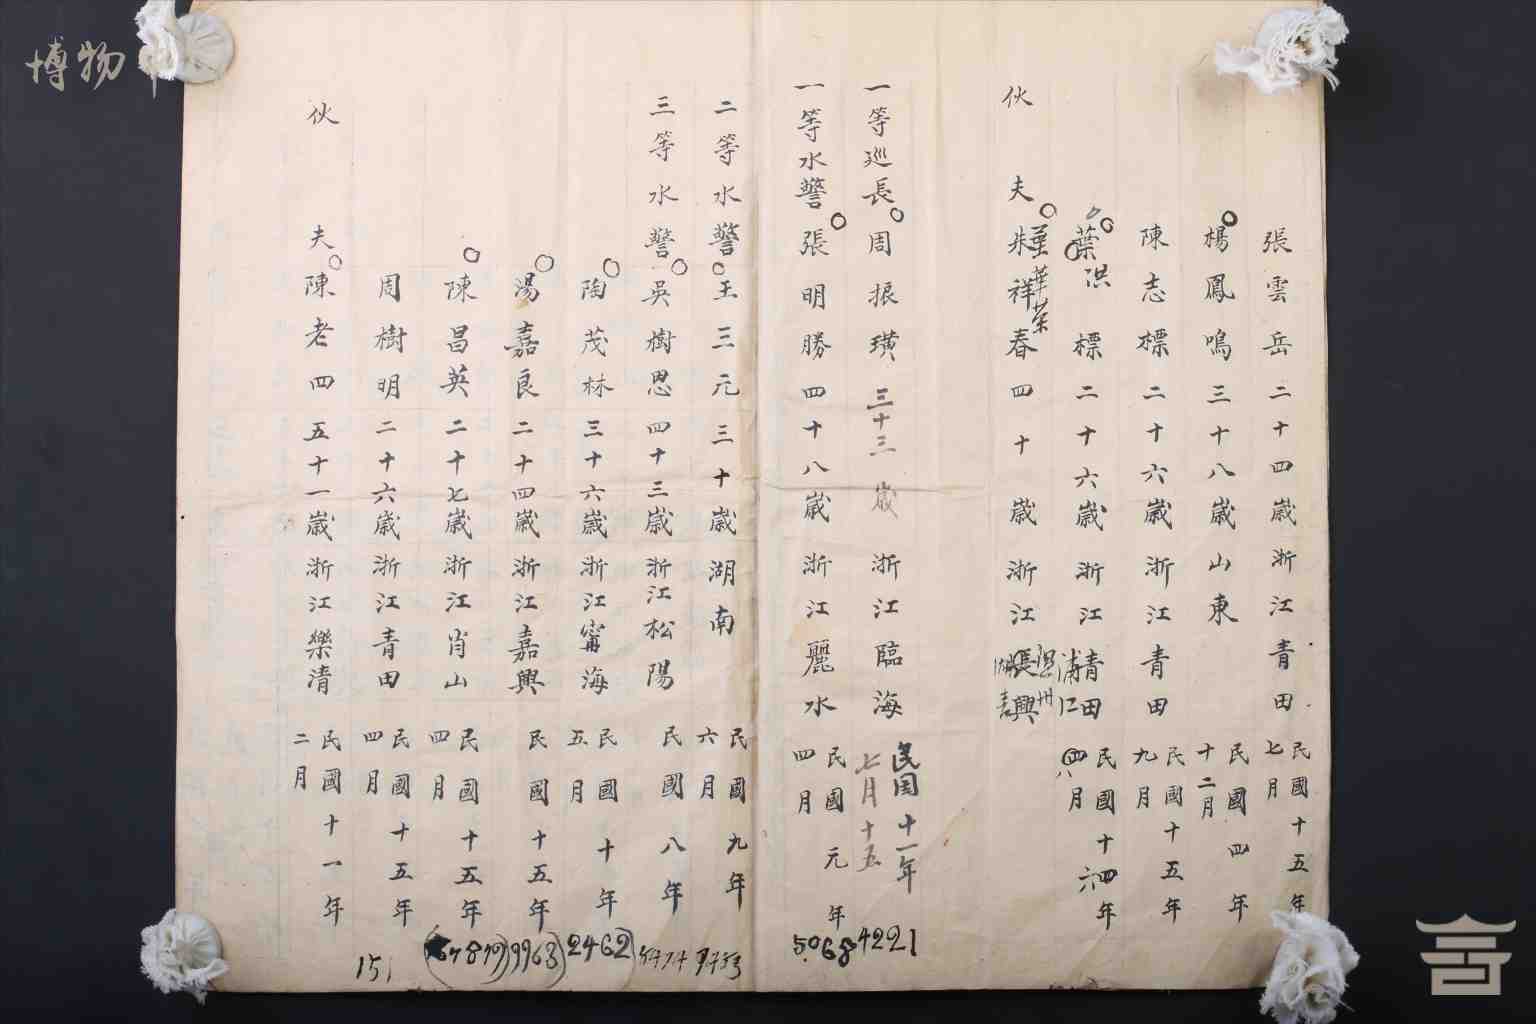 博物
張雲岳 二十四歲 浙江青田 民國十五年七月
楊鳳鳴 三十八歲 山東 民國四年十二月
陳志標 二十六歲 浙江青田 民國十五年九月
葉標 洪 二十六歲 浙江青田 浦仁 民國十四年 六 四月 八
伙夫 朱祥春 葉華榮 四十歲 浙江長興 温州
一等巡長 周振璜 三十三歲 浙江臨海 民国十一年七月十五 4221
一等水警 張明勝 四十八歲 浙江麗水 民國元年四月 5068
二等水警 王三元 三十歲 湖南 民國九年六月
三等水警 吳樹恩 四十三歲 浙江松陽 民國八年
陶茂林 三十六歲 浙江甯海 民國十年五月 2462
湯嘉良 二十四歲 浙江嘉興 民國十五年 9963
陳昌英 二十七歲 浙江肖山 民國十五年四月
周樹明 二十六歲 浙江青田 民國十五年四月
伙夫 陳老四 五十一歲 浙江樂清 民國十一年二月 151